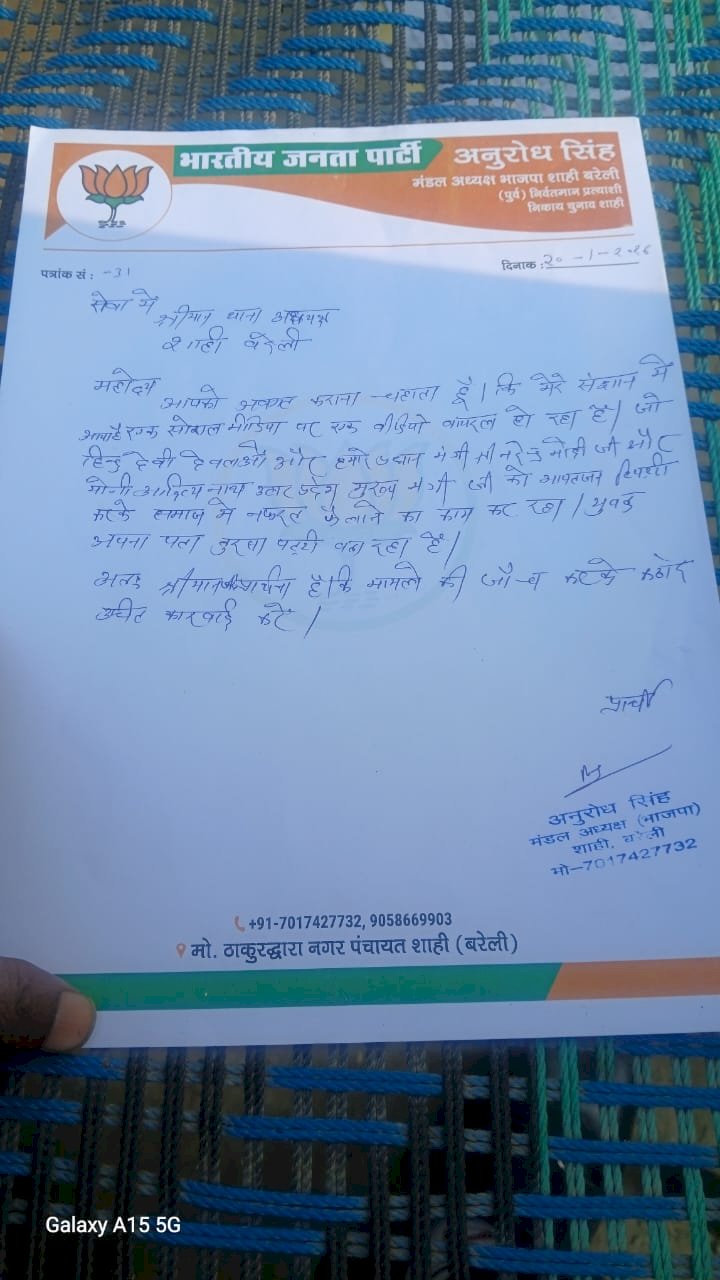 भारतीय जनता पार्टी
अनुरोध सिंह
मंडल अध्यक्ष भाजपा शाही बरेली
(पुर्व) निर्वतमान प्रत्याशी
निकाय चुनाव शाही
पत्रांक सं: -31
दिनाक: 20-1-2026
सेवा में
श्रीमान थाना अध्यक्ष
शाही बरेली
महोदय
आपको अवगत कराना चहाता हूँ। कि मेरे संज्ञान में
आया है एक सोशल मीडिया पर एक वीडियो वायरल हो रहा है। जो
हिन्दु देवी देवताओ और हमारे प्रधान मंत्री श्री नरेन्द्र मोदी जी और
योगी आदित्य नाथ उत्तर प्रदेश मुख्य मंत्री जी को टिप्पडी
करके समाज में नफरत फैलाने का काम कर रहा। युवक
अपना पता तुरसा पट्टी बता रहा है।
अतः श्रीमान प्रार्थना है। कि मामले की जाँच करके कठोर
उचित कारवाई करें।
प्रार्थी
अनुरोध सिंह
मंडल अध्यक्ष (भाजपा)
शाही, बरेली
मो-7017427732
+91-7017427732, 9058669903
मो. ठाकुरद्वारा नगर पंचायत शाही (बरेली)
Galaxy A15 5G